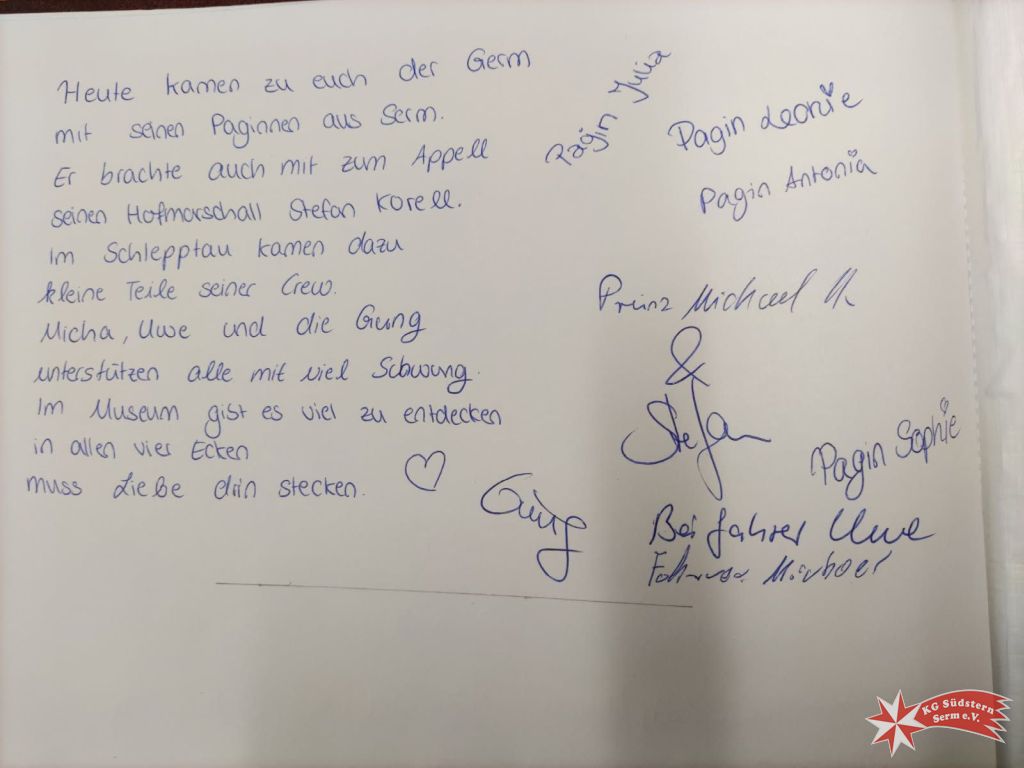 Heute kamen zu euch der Germ
mit seinen Paginnen aus Serm.
Er brachte auch mit zum Appell
seinen Hofmarschall Stefan Korell.
Im Schlepptau kamen dazu
kleine Teile seiner Crew.
Micha, Uwe und die Gung
unterstützen alle mit viel Schwung.
Im Museum gist es viel zu entdecken
in allen vier Ecken
muss Liebe drin stecken.
Pagin Julia
Pagin Leonie
Pagin Antonia
Prinz Michael
&
Stefan
Pagin Sophie
Gung
Beifahrer Uwe
KG Südstern
Serm e.V.